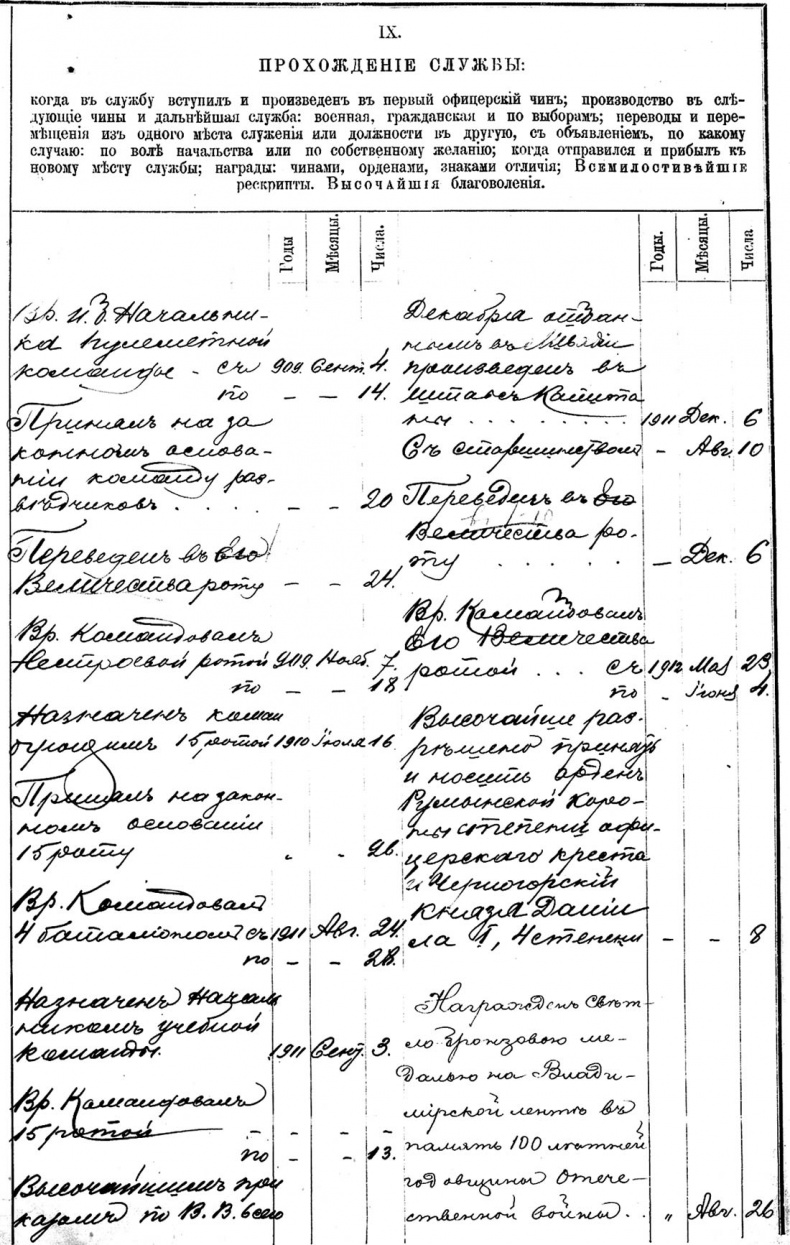 IX.
ПРОХОЖДЕНІЕ СЛУЖБЫ:
когда въ службу вступилъ и произведенъ въ первый офицерскій чинъ; производство въ слѣ-
дующіе чины и дальнѣйшая служба: военная, гражданская и по выборамъ; переводы и пере-
мѣщенія изъ одного мѣста служенія или должности въ другую, съ объявленіемъ, по какому
случаю: по волѣ начальства или по собственному желанію; когда отправился и прибылъ къ
новому мѣсту службы; награды: чинами, орденами, знаками отличія; Всемилостивѣйшіе
рескрипты. Высочайшія благоволенія.
Годы
Мѣсяцы.
Числа.
Вр. и. д. Начальни-
ка пулеметной
команды – съ 909. Сент. 4.
по – – 14.
Принялъ на за
конномъ основа-
ніи команду раз-
вѣдчиковъ . . . . – – 20
Переведенъ въ Его
Величества роту – – 24.
Вр. Командовалъ
Нестроевой ротой 909. Нояб. 7.
по – – 18.
Назначенъ коман
дующимъ 15 ротой 1910 Іюля 16.
Принялъ на закон-
номъ основаніи
15 роту „ – 26.
Вр. Командовалъ
4 баталіономъ съ 1911 Авг. 24.
по – – 28.
Назначенъ Началь
никомъ учебной
команды. 1911 Сент. 3.
Вр. Командовалъ
15 ротой – – –
по – – 13.
Высочайшимъ при
казомъ по В. В. 6 сего
Годы.
Мѣсяцы.
Числа
Декабря
произведенъ въ
Штабсъ Капита
ны . . . . . . . . 1911 Дек. 6
Съ старшинствомъ – Авг. 10
Переведенъ въ Его
Величества ро-
ту . . . . . – Дек. 6
Вр. Командовалъ
Его Величества
ротой . . . съ 1912 Мая 23,
по „ Іюня 4.
Высочайше раз-
рѣшено принять
и носить орденъ
Румынской Коро-
ны степени офи-
церскаго креста
и Черногорскій
Князя Даніи
ла I, 4 степени – – 8
Награжденъ свѣт-
ло бронзовою ме-
далью на Влади-
мірской лентѣ въ
память 100 лѣтней
годовщины Отече-
ственной войны . . „ Авг. 26